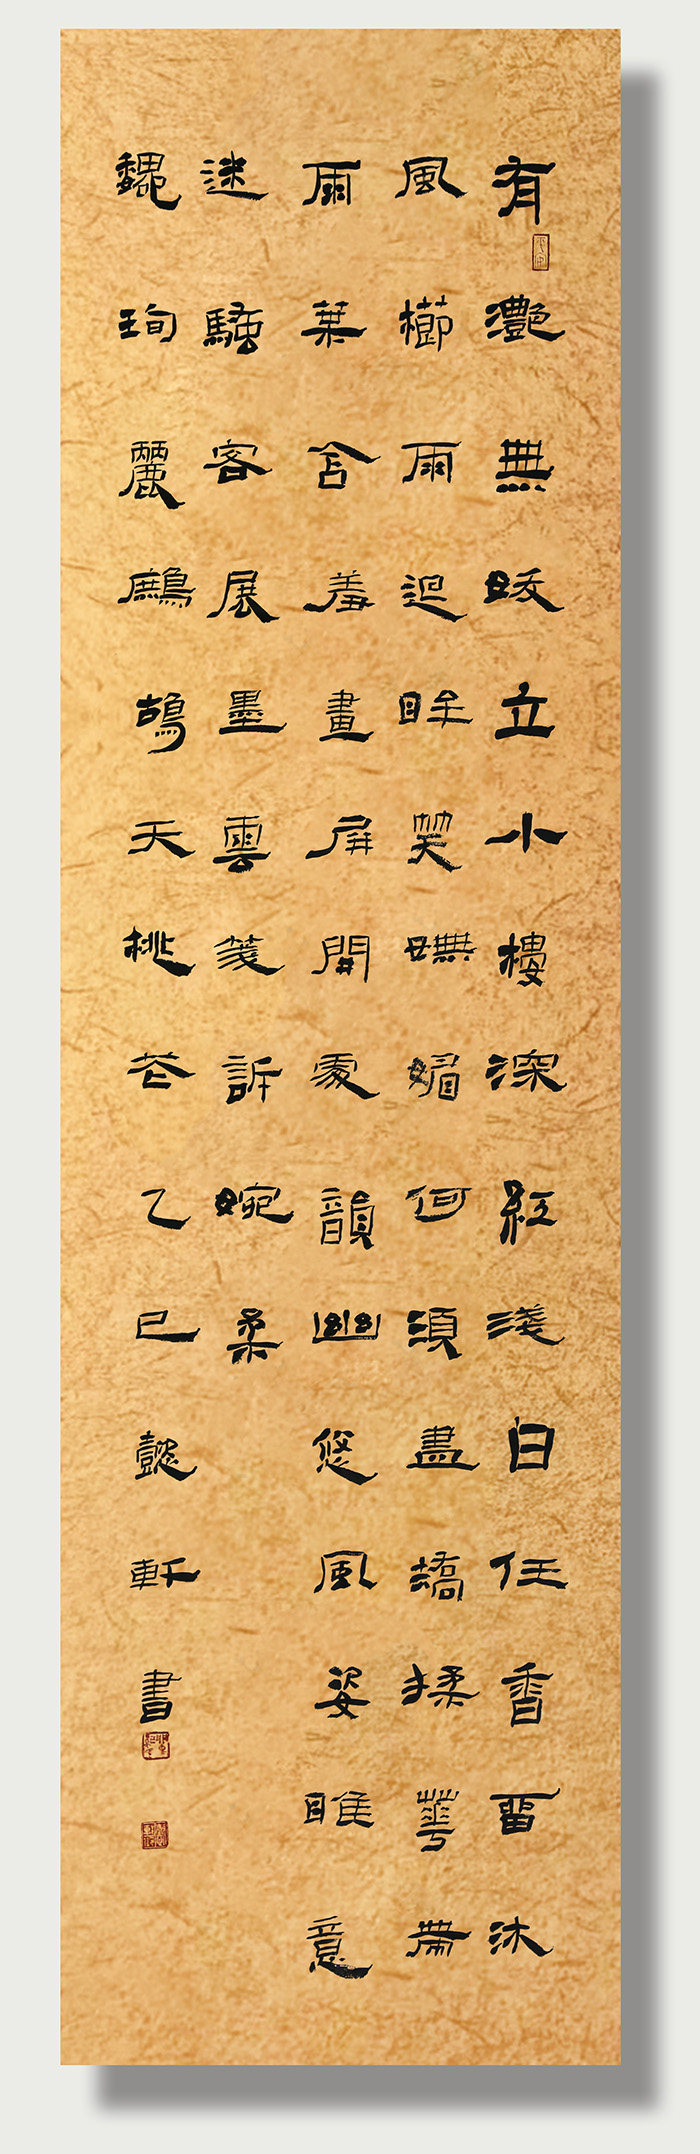 有灩無妖立小樓深紅淺白任香留沐
風櫛雨迴眸笑嫵媚何須盡矯揉華帶
雨葉含羞畫屏開處韻幽悠風姿睢意
迷騷客展墨雲箋訴婉柔
魏珣麗鷓鴣天桃花乙巳懿軒書